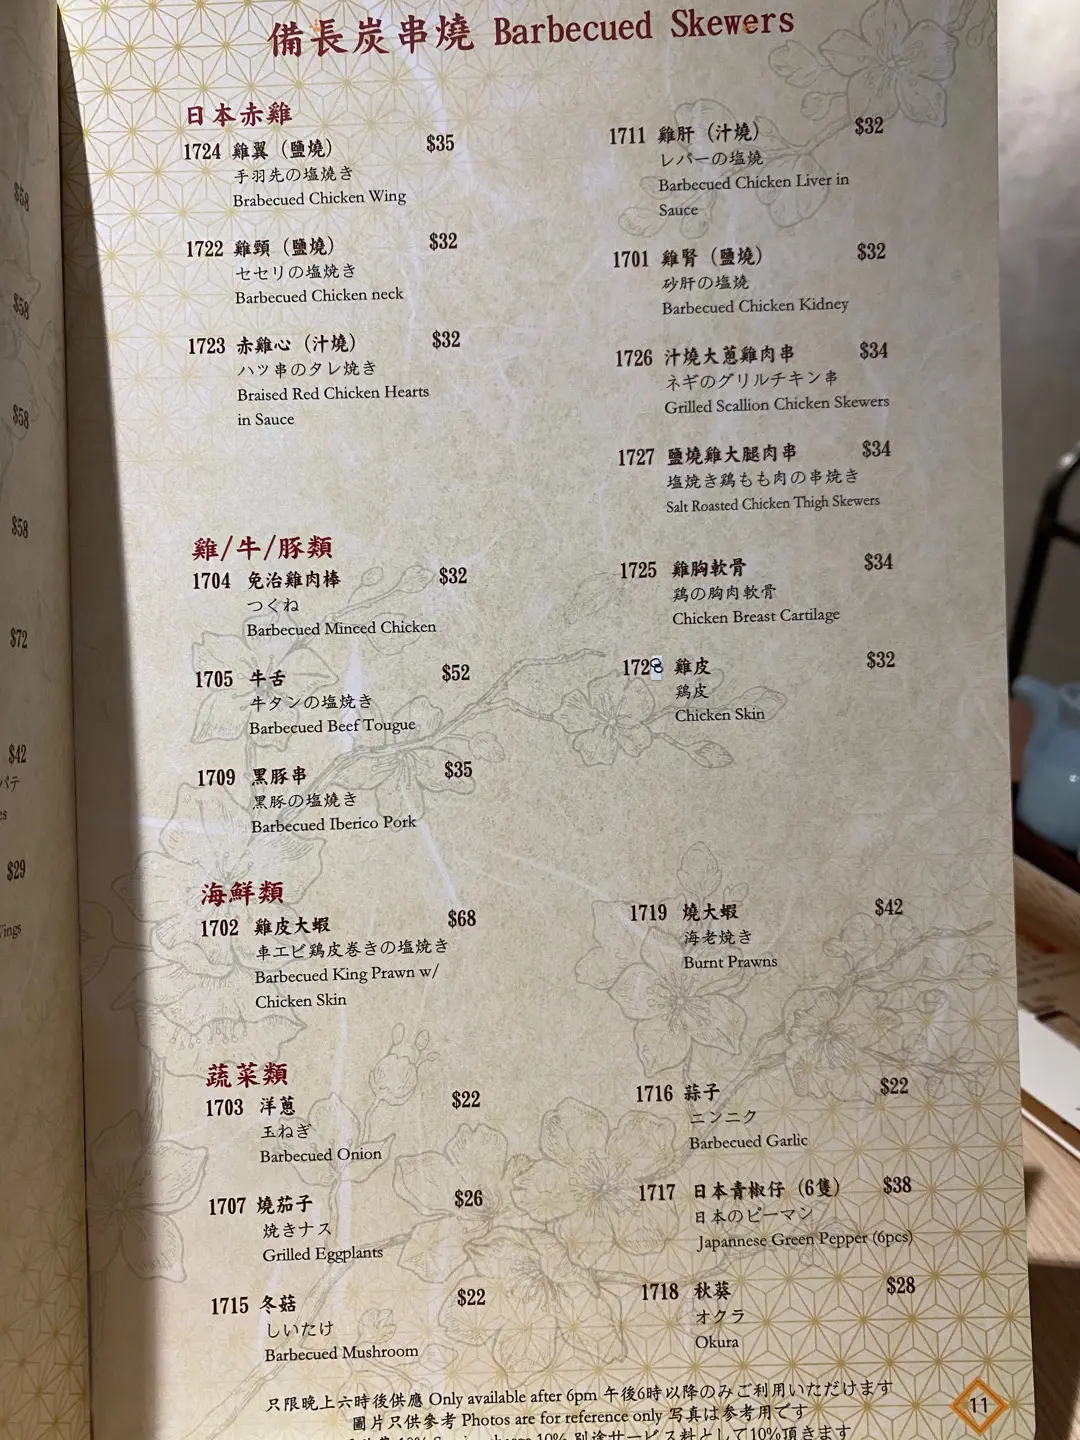 備長炭串燒 Barbecued Skewers
日本赤雞
1724 雞翼（鹽燒） $35
手羽先の塩焼き
Brabecued Chicken Wing
1722 雞頸（鹽燒） $32
セセリの塩焼き
Barbecued Chicken neck
1723 赤雞心（汁燒） $32
ハツ串のタレ焼き
Braised Red Chicken Hearts
in Sauce
1711 雞肝（汁燒） $32
レバーの塩燒
Barbecued Chicken Liver in
Sauce
1701 雞腎（鹽燒） $32
砂肝の塩燒
Barbecued Chicken Kidney
1726 汁燒大蔥雞肉串 $34
ネギのグリルチキン串
Grilled Scallion Chicken Skewers
1727 鹽燒雞大腿肉串 $34
塩焼き鶏もも肉の串焼き
Salt Roasted Chicken Thigh Skewers
雞/牛/豚類
1704 免治雞肉棒 $32
つくね
Barbecued Minced Chicken
1705 牛舌 $52
牛タンの塩焼き
Barbecued Beef Tougue
1709 黑豚串 $35
黒豚の塩焼き
Barbecued Iberico Pork
1725 雞胸軟骨 $34
鶏の胸肉軟骨
Chicken Breast Cartilage
1728 雞皮 $32
鶏皮
Chicken Skin
海鮮類
1702 雞皮大蝦 $68
車エビ鶏皮巻きの塩焼き
Barbecued King Prawn w/
Chicken Skin
1719 燒大蝦 $42
海老焼き
Burnt Prawns
蔬菜類
1703 洋蔥 $22
玉ねぎ
Barbecued Onion
1707 燒茄子 $26
焼きナス
Grilled Eggplants
1715 冬菇 $22
しいたけ
Barbecued Mushroom
1716 蒜子 $22
ニンニク
Barbecued Garlic
1717 日本青椒仔（6隻） $38
日本のピーマン
Japannese Green Pepper (6pcs)
1718 秋葵 $28
オクラ
Okura
只限晚上六時後供應 Only available after 6pm 午後6時以降のみご利用いただけます
圖片只供參考 Photos are for reference only 写真は参考用です
10% 別途サービス料として10%頂きます
11
$58
$58
$58
$58
$72
$42
パテ
es
$29
Wings